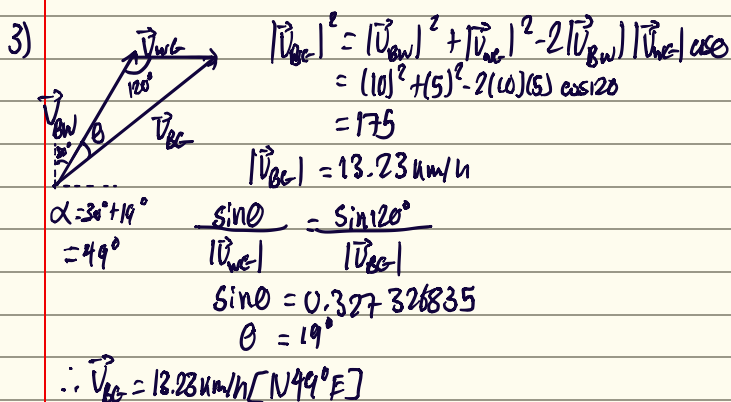 3)
V⃗WG
120°
V⃗BW
θ
30°
V⃗BG
|V⃗BG|² = |V⃗BW|² + |V⃗WG|² - 2|V⃗BW||V⃗WG| cosθ
= (10)² + (5)² - 2(10)(5) cos120
= 175
|V⃗BG| = 13.23 km/h
α = 30° + 19°
= 49°
sinθ / |V⃗WG| = sin120° / |V⃗BG|
sinθ = 0.327326835
θ = 19°
∴ V⃗BG = 13.23 km/h [N49°E]